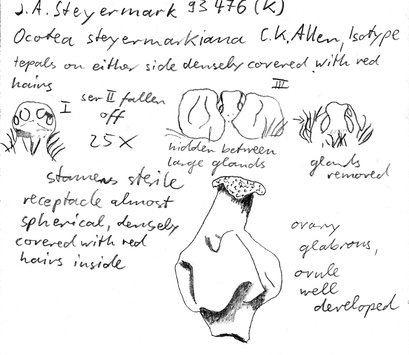 J.A. Steyermark 93 476 (K)
Ocotea steyermarkiana C.K.Allen, Isotype
tepals on either side densely covered with red
hairs
I
ser II fallen
off
25X
III
hidden between
large glands
glands
removed
stamens sterile
receptacle almost
spherical, densely
covered with red
hairs inside
ovary
glabrous,
ovule
well
developed